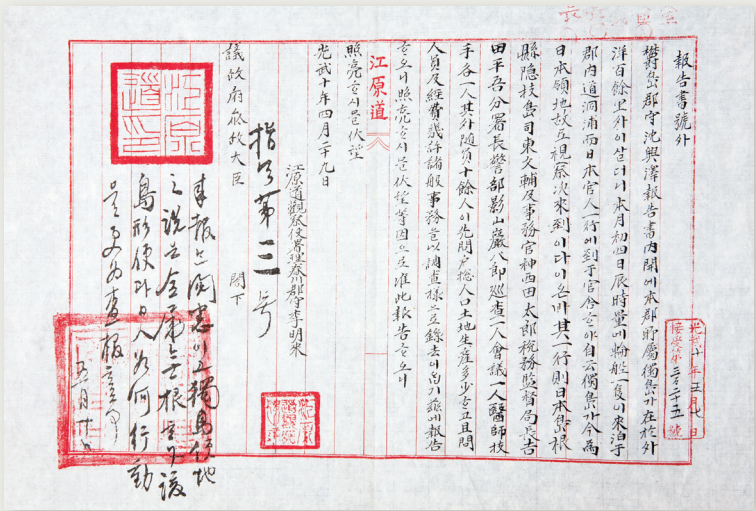 報告書號外
鬱島郡守沈興澤報告書內開에本郡所屬獨島가在於外
洋百餘里外이살더니本月初四日辰時量에輪船一隻이來泊于
郡內道洞浦而日本官人一行에到于官舍ᄒᆞ야自云獨島가今爲
日本領地故로視察次來到이다이온바其一行則日本島根
縣隱技島司東文輔及事務官神西田太郎稅務監督局長吉
田平吾分署長警部影山巖八郎巡查一人會議一人醫師技
手各一人其外隨員十餘人이先問戶総人口土地生産多少ᄒᆞ고且問
人員及經費幾許諸般事務를以調查樣으로錄去이ᄋᆞᆸ기玆에報告
ᄒᆞ오니照亮ᄒᆞ시믈伏望等因으로准此報告ᄒᆞ오니
江原道
照亮ᄒᆞ시믈伏望
光武十年四月二十九日
江原道觀察使署理春川郡守李明來
議政府參政大臣 閣下
指令第三号
來報는閱悉이고獨島領地
之說은全屬無根ᄒᆞ나該
島形便과日人如何行動
을更爲查報ᄒᆞᆯ事
五月廿日
光武十年五月七日
接受第三二十五號
江原
道印